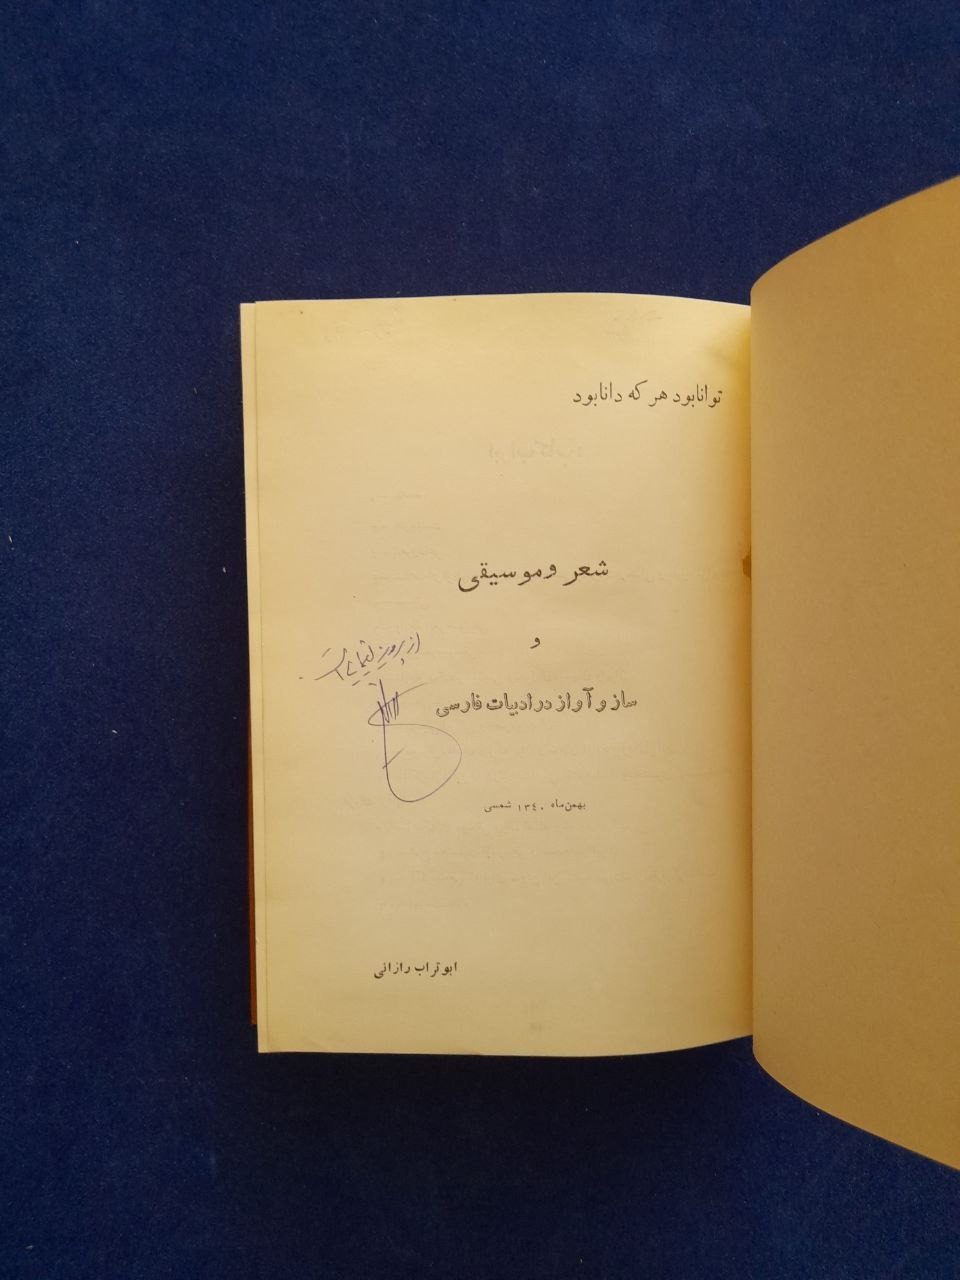 توانا بود هر که دانا بود
شعر و موسیقی
و
از پرویز
ساز و آواز در ادبیات فارسی
بهمن‌ماه ۱۳٤۰ شمسی
ابوتراب رازانی